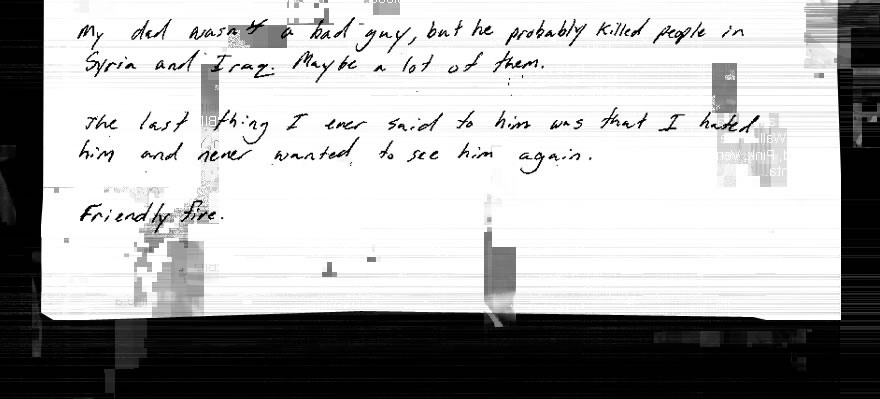 My dad wasn't a bad guy, but he probably killed people in
Syria and Iraq. Maybe a lot of them.
The last thing I ever said to him was that I hated
him and never wanted to see him again.
Friendly fire.